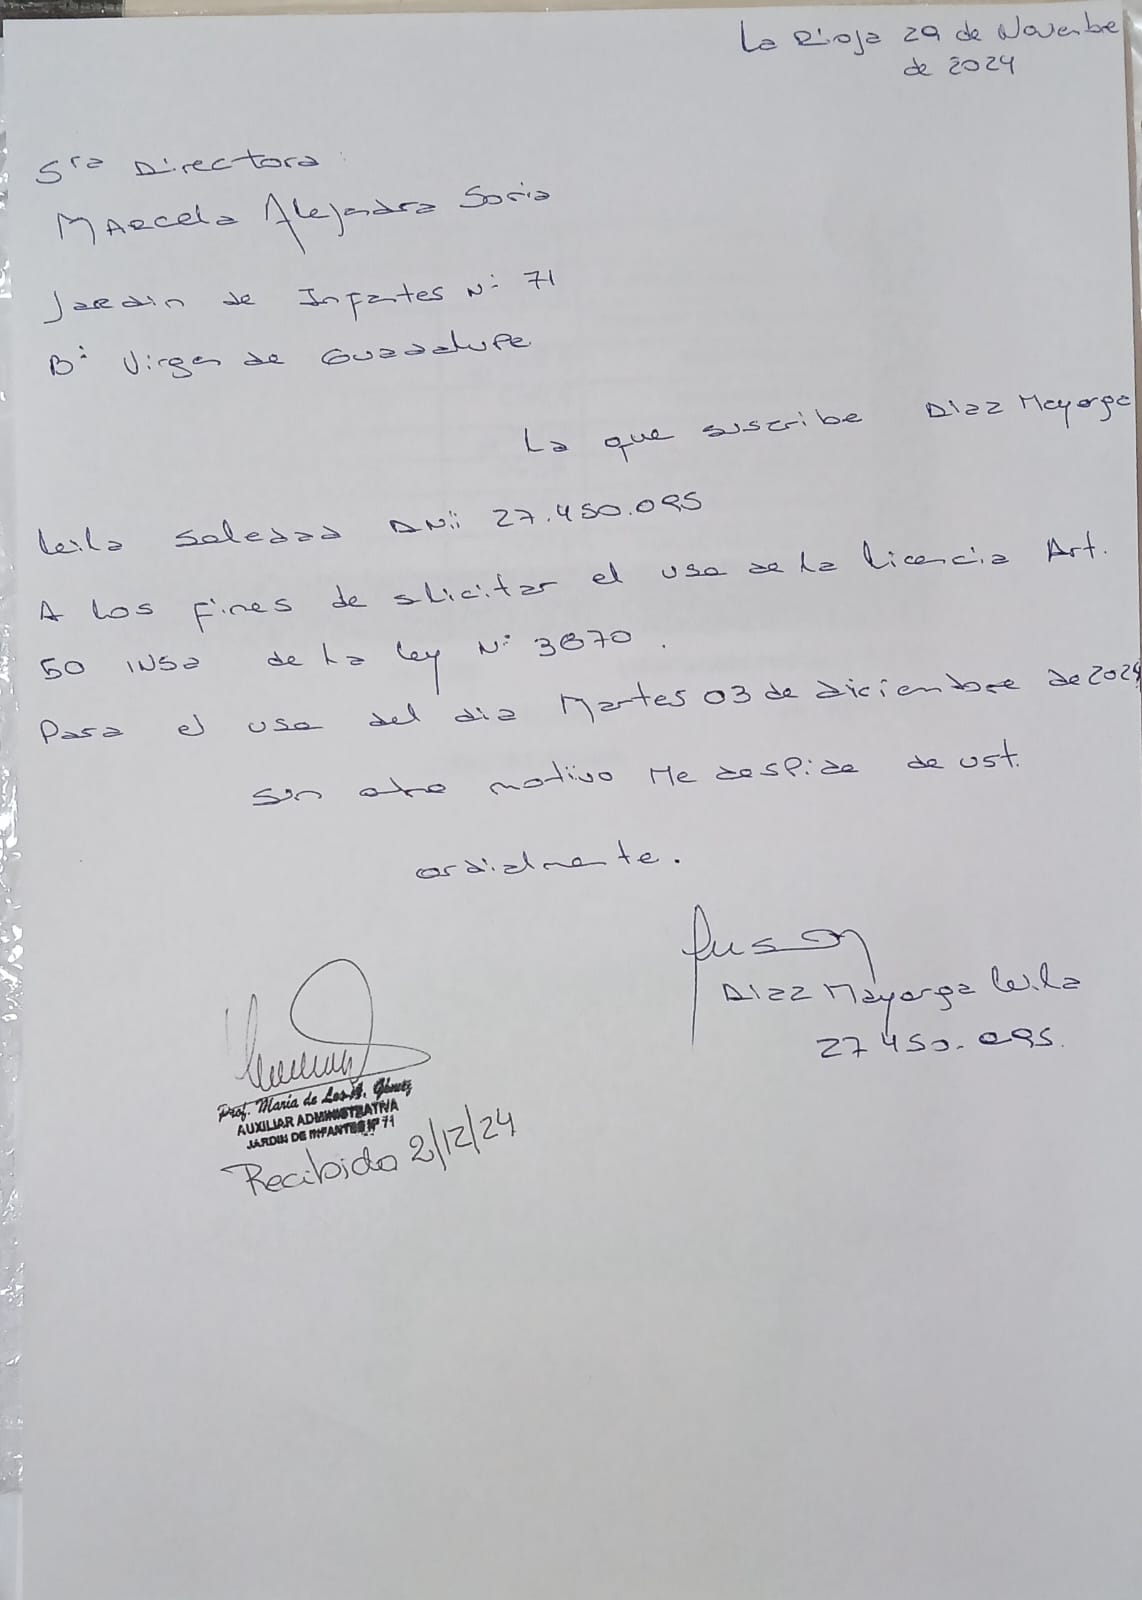 La Rioja 29 de Novembre
de 2024
Sra Directora:
Marcela Alejandra Soria
Jardin de Infantes N: 71
B: Virgen de Guadalupe
La que suscribe Diaz Mayorga
Leila Soledad DNi: 27.450.095
A los fines de slicitar el uso de la licencia Art.
50 INSa de la ley N: 3870.
Para el uso del dia Martes 03 de diciembre de 2024
Sin otro motivo Me despide de ust.
ordialmente.
Diaz Mayorga Leila
27 450.095.
Prof. Maria de Los A. Gómez
AUXILIAR ADMINISTRATIVA
JARDIN DE INFANTES Nº 71
Recibido 2/12/24